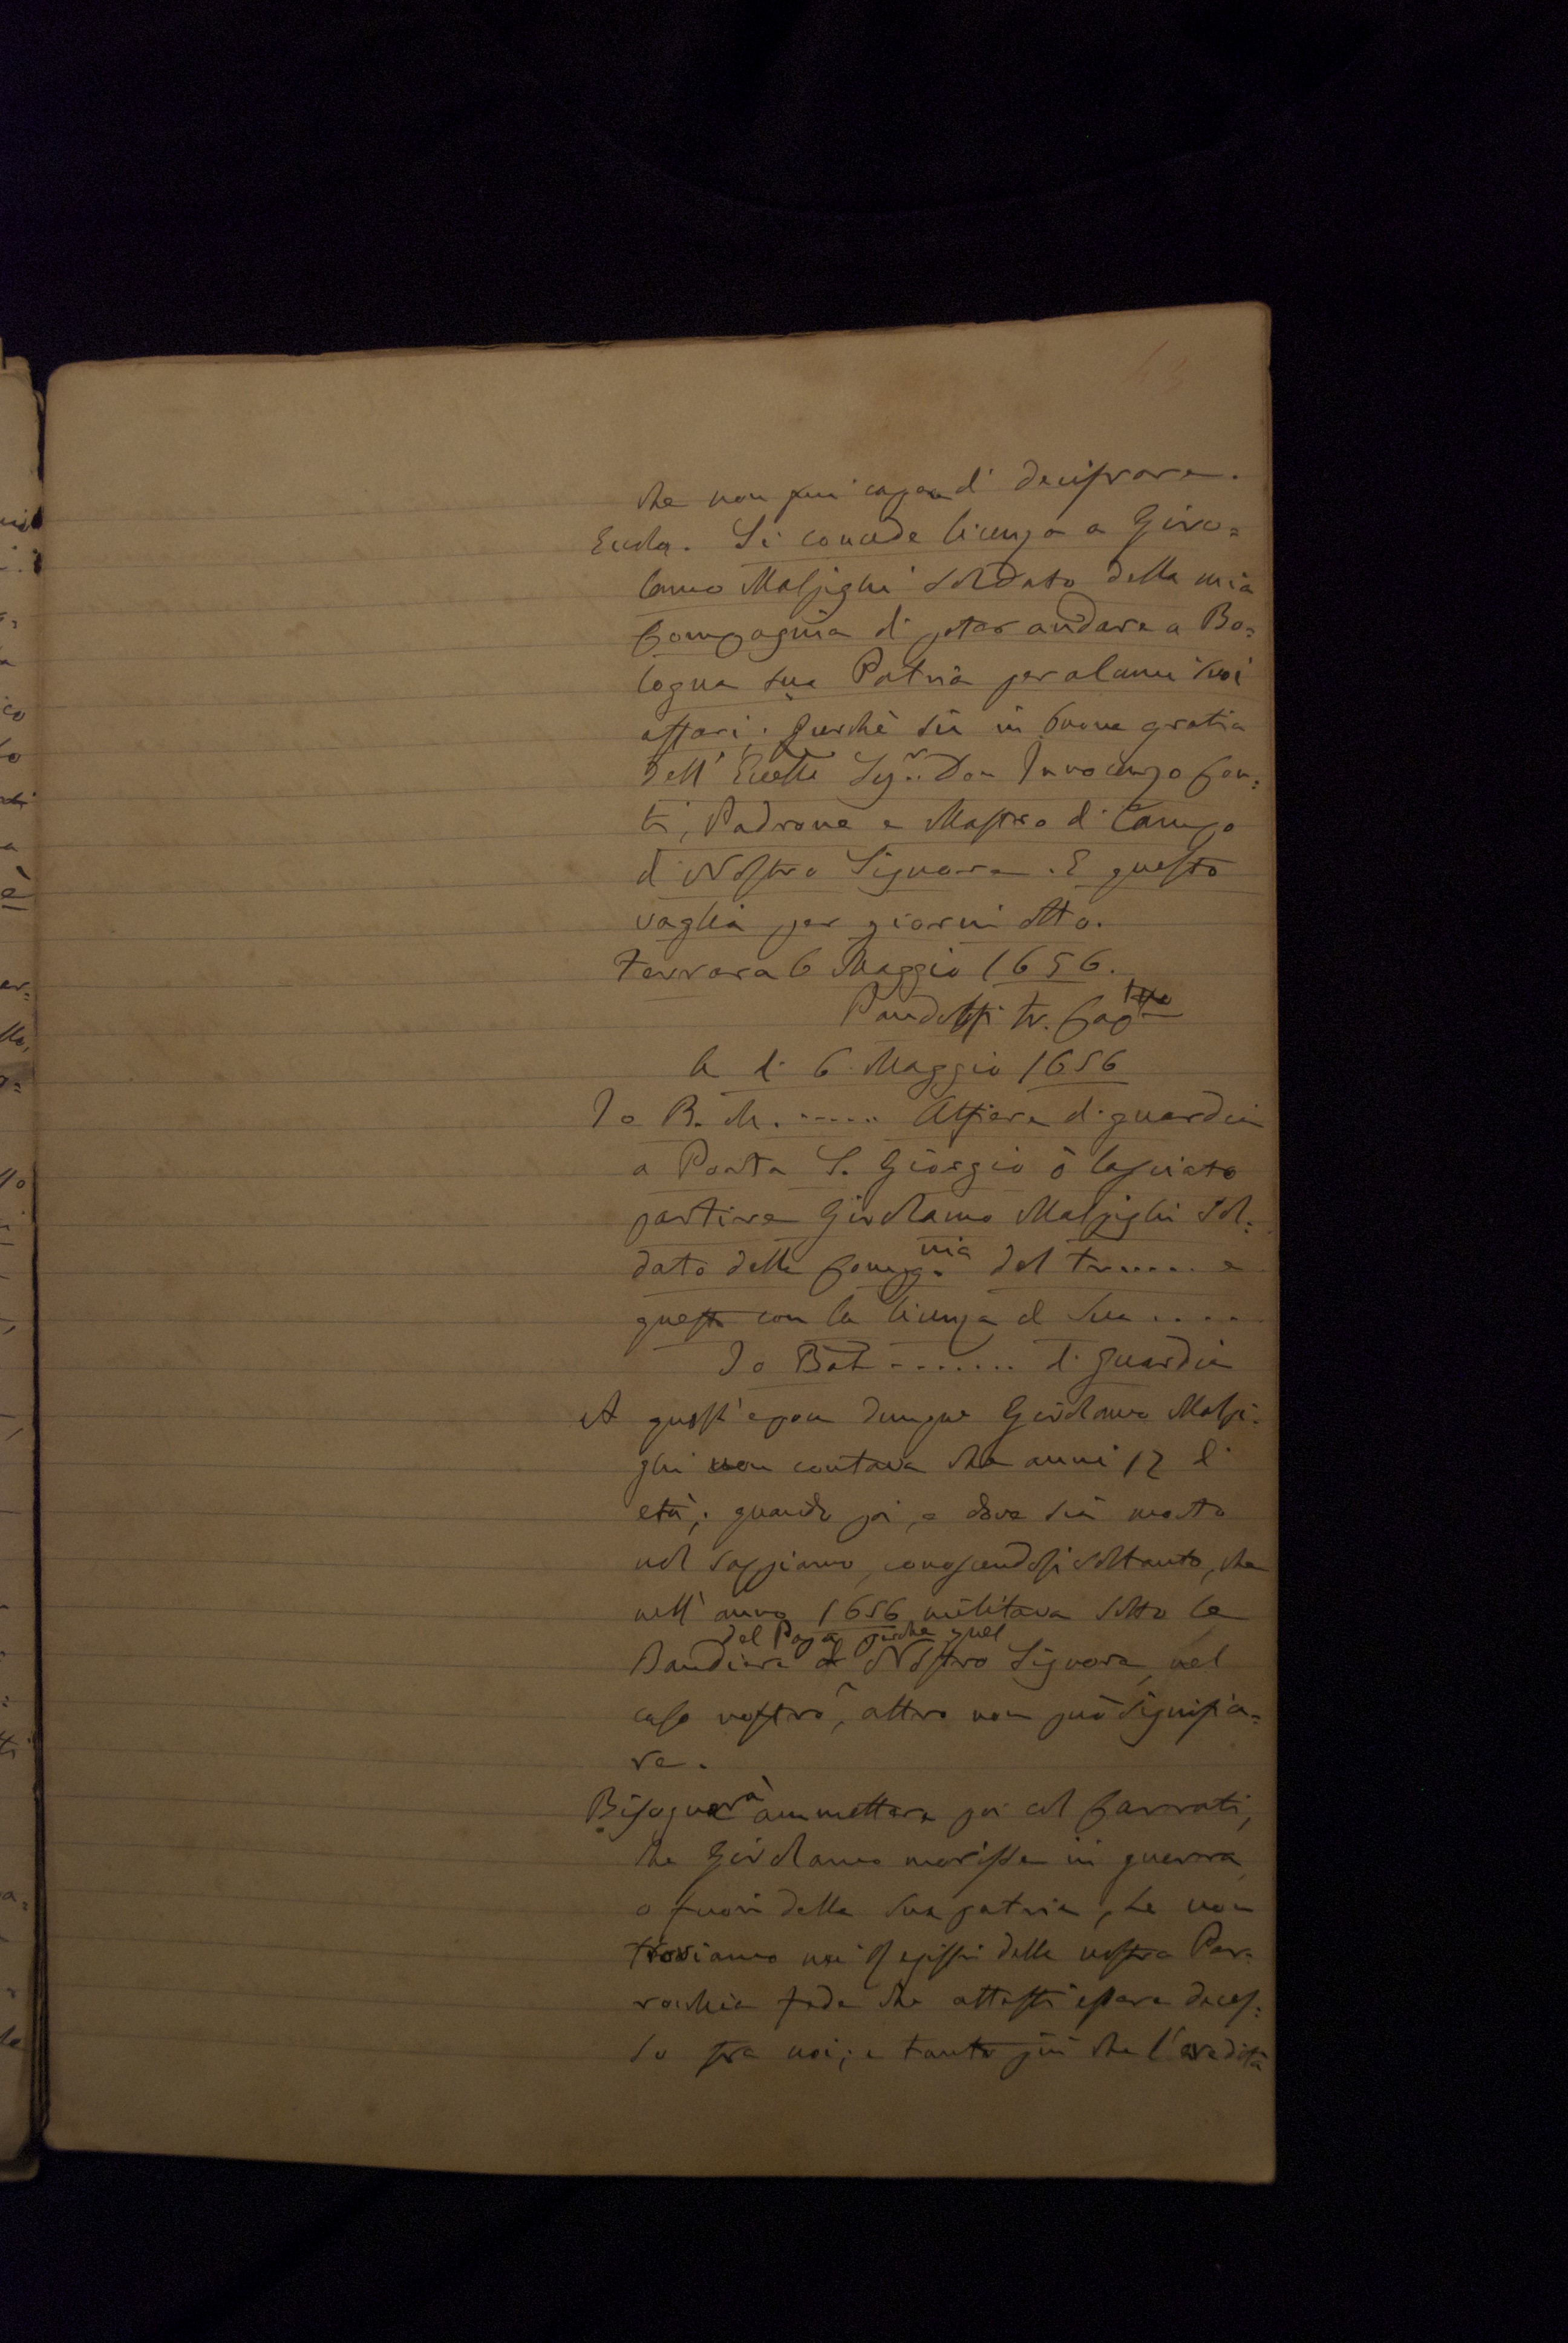 che non fui capace di decifrare.
Eccola. Si concede licenza a Giro=
lamo Malpighi Soldato della mia
Compagnia di poter andare a Bo=
logna sua Patria per alcuni suoi
affari; perchè sii in buona gratia
dell' Eccell. Sigr. Don Innocenzo Con=
ti, Padrone e Mastro di Campo
di Nostro Signore. E questo
vaglia per giorni otto.
Ferrara 6 Maggio 1656.
Pandolfi tr. Cap
A dì 6 Maggio 1656
Io B. M. ...... Alfiere di guardia
a Porta S. Giorgio ò lasciato
partire Girolamo Malpighi Sol=
dato della Comp.nia del tr..... e
questo con la licenza del suo ....
Io Bat ........ di guardia
A quest'epoca dunque Girolamo Malpi=
ghi non contava che anni 12 di
età; quando poi, e dove sia morto
nol sappiamo, conoscendosi soltanto, che
nell'anno 1656 militava sotto le
del Papa perchè quel
Bandiere di Nostro Signore nel
caso nostro, altro non può significa=
re.
Bisognerà ammettere poi col Carrati,
che Girolamo morisse in guerra,
o fuori della sua patria, se non
troviamo nei Registri della nostra Par=
rochia fede che attesti essere deces=
so fra noi; e tanto più che l'eredità